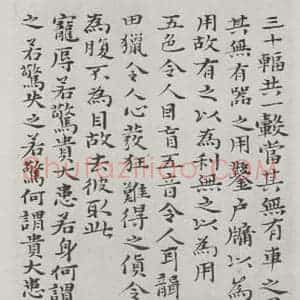 三十輻共一轂當其無有車之
其無有器之用鑿戶牖以為
用故有之以為利無之以為用
五色令人目盲五音令人耳聾
田獵令人心發狂難得之貨令
為腹不為目故去彼取此
寵辱若驚貴大患若身何謂
之若驚失之若驚何謂貴大患
Shufaziliao.COM